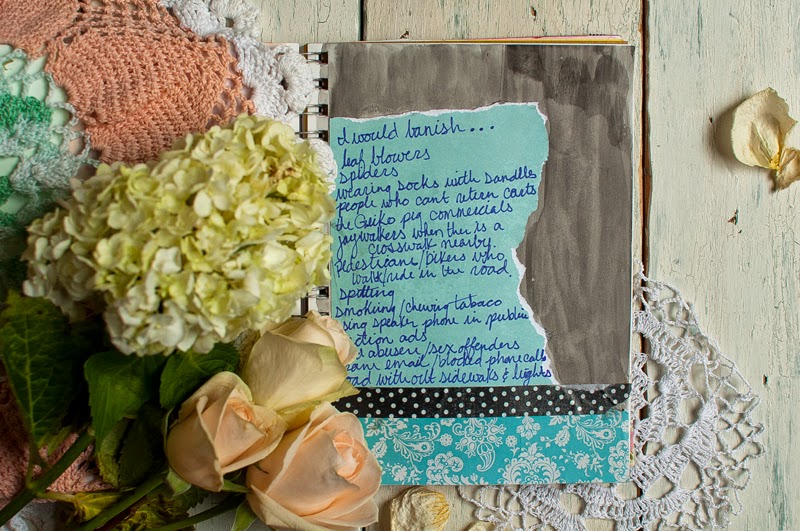 I would banish...
leaf blowers
spiders
wearing socks with sandles
people who can't return carts
the Geiko pig commercials
jaywalkers when ther is a
crosswalk nearby.
pedestrians/bikers who
walk/ride in the road
spitting
smoking/chewing tabaco
sing speaker phone in public
ction ads
abusers/sex offenders
email/blocked phone calls
without sidewaks & lights